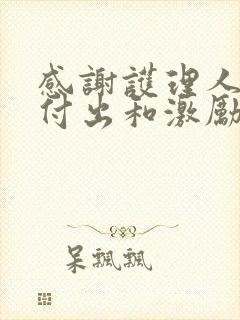 感謝護理人
付出和激勵
呆飄飄